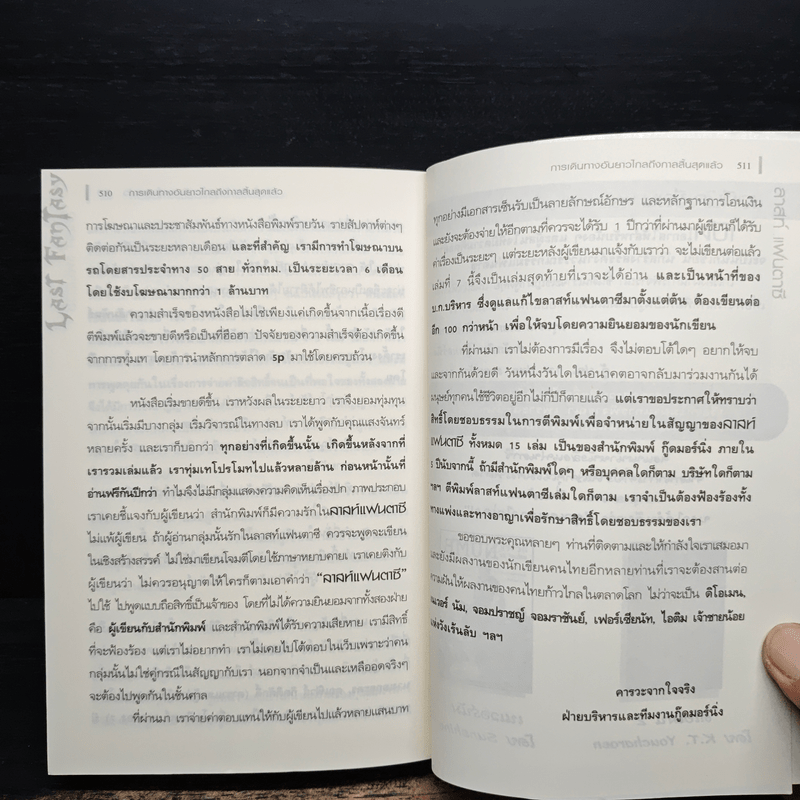 LAST FANTASY
510 การเดินทางอันยาวไกลถึงกาลสิ้นสุดแล้ว
การโฆษณาและประชาสัมพันธ์ทางหนังสือพิมพ์รายวัน รายสัปดาห์ต่างๆ
ติดต่อกันเป็นระยะหลายเดือน และที่สำคัญ เรามีการทำโฆษณาบน
รถโดยสารประจำทาง 50 สาย ทั่วกทม. เป็นระยะเวลา 6 เดือน
โดยใช้งบโฆษณามากกว่า 1 ล้านบาท
ความสำเร็จของหนังสือไม่ใช่เพียงแค่เกิดขึ้นจากเนื้อเรื่องดี
ตีพิมพ์แล้วจะขายดีหรือเป็นที่ฮือฮา ปัจจัยของความสำเร็จต้องเกิดขึ้น
จากการทุ่มเท โดยการนำหลักการตลาด sp มาใช้โดยครบถ้วน
หนังสือเริ่มขายดีขึ้น เราหวังผลในระยะยาว เราจึงยอมทุ่มทุน
จากนั้นเริ่มมีบางกลุ่ม เริ่มวิจารณ์ในทางลบ เราได้พูดกับคุณแสงจันทร์
หลายครั้ง และเราก็บอกว่า ทุกอย่างที่เกิดขึ้นนั้น เกิดขึ้นหลังจากที่
เรารวมเล่มแล้ว เราทุ่มเทโปรโมทไปแล้วหลายล้าน ก่อนหน้านั้นที่
อ่านฟรีกันปีกว่า ทำไมจึงไม่มีกลุ่มแสดงความคิดเห็นเรื่องปก ภาพประกอบ
เราเคยชี้แจงกับผู้เขียนว่า สำนักพิมพ์ก็มีความรักในลาสท์แฟนตาซี
ไม่แพ้ผู้เขียน ถ้าผู้อ่านกลุ่มนั้นรักในลาสท์แฟนตาซี ควรจะพูดจะเขียน
ในเชิงสร้างสรรค์ ไม่ใช่มาเขียนโจมตีโดยใช้ภาษาหยาบคาย เราเคยติงกับ
ผู้เขียนว่า ไม่ควรอนุญาตให้ใครก็ตามเอาคำว่า "ลาสท์แฟนตาซี"
ไปใช้ ไปพูดแบบถือสิทธิ์เป็นเจ้าของ โดยที่ไม่ได้ความยินยอมจากทั้งสองฝ่าย
คือ ผู้เขียนกับสำนักพิมพ์ และสำนักพิมพ์ได้รับความเสียหาย เรามีสิทธิ์
ที่จะฟ้องร้อง แต่เราไม่อยากทำ เราไม่เคยไปโต้ตอบในเว็บเพราะว่าคน
กลุ่มนั้นไม่ใช่คู่กรณีในสัญญากับเรา นอกจากจำเป็นและเหลืออดจริงๆ
จะต้องไปพูดกันในชั้นศาล
ที่ผ่านมา เราจ่ายค่าตอบแทนให้กับผู้เขียนไปแล้วหลายแสนบาท
การเดินทางอันยาวไกลถึงกาลสิ้นสุดแล้ว 511
ลาสท์ แฟนตาซี
ทุกอย่างมีเอกสารเซ็นรับเป็นลายลักษณ์อักษร และหลักฐานการโอนเงิน
และยังจะต้องจ่ายให้อีกตามที่ควรจะได้รับ 1 ปีกว่าที่ผ่านมาผู้เขียนก็ได้รับ
ค่าเรื่องเป็นระยะๆ แต่ระยะหลังผู้เขียนมาแจ้งกับเราว่า จะไม่เขียนต่อแล้ว
เล่มที่ 7 นี้จึงเป็นเล่มสุดท้ายที่เราจะได้อ่าน และเป็นหน้าที่ของ
บ.ก.บริหาร ซึ่งดูแลแก้ไขลาสท์แฟนตาซีมาตั้งแต่ต้น ต้องเขียนต่อ
อีก 100 กว่าหน้า เพื่อให้จบโดยความยินยอมของนักเขียน
ที่ผ่านมา เราไม่ต้องการมีเรื่อง จึงไม่ตอบโต้ใดๆ อยากให้จบ
และจากกันด้วยดี วันหนึ่งวันใดในอนาคตอาจกลับมาร่วมงานกันได้
มนุษย์ทุกคนใช้ชีวิตอยู่อีกไม่กี่ปีก็ตายแล้ว แต่เราขอประกาศให้ทราบว่า
สิทธิ์โดยชอบธรรมในการตีพิมพ์เพื่อจำหน่ายในสัญญาของลาสท์
แฟนตาซี ทั้งหมด 15 เล่ม เป็นของสำนักพิมพ์ กู๊ดมอร์นิ่ง ภายใน
ปีนับจากนี้ ถ้ามีสำนักพิมพ์ใดๆ หรือบุคคลใดก็ตาม บริษัทใดก็ตาม
ฯลฯ ตีพิมพ์ลาสท์แฟนตาซีเล่มใดก็ตาม เราจำเป็นต้องฟ้องร้องทั้ง
ทางแพ่งและทางอาญาเพื่อรักษาสิทธิ์โดยชอบธรรมของเรา
ขอขอบพระคุณหลายๆ ท่านที่ติดตามและให้กำลังใจเราเสมอมา
และยังมีผลงานของนักเขียนคนไทยอีกหลายท่านที่เราจะต้องสานต่อ
ความฝันให้ผลงานของคนไทยก้าวไกลในตลาดโลก ไม่ว่าจะเป็น ดิโอเมน,
นัม, จอมปราชญ์ จอมราชันย์, เฟอร์เซียนัท, ไอติม เจ้าชายน้อย
แห่งวังเร้นลับ ฯลฯ
คารวะจากใจจริง
ฝ่ายบริหารและทีมงานกู๊ดมอร์นิ่ง